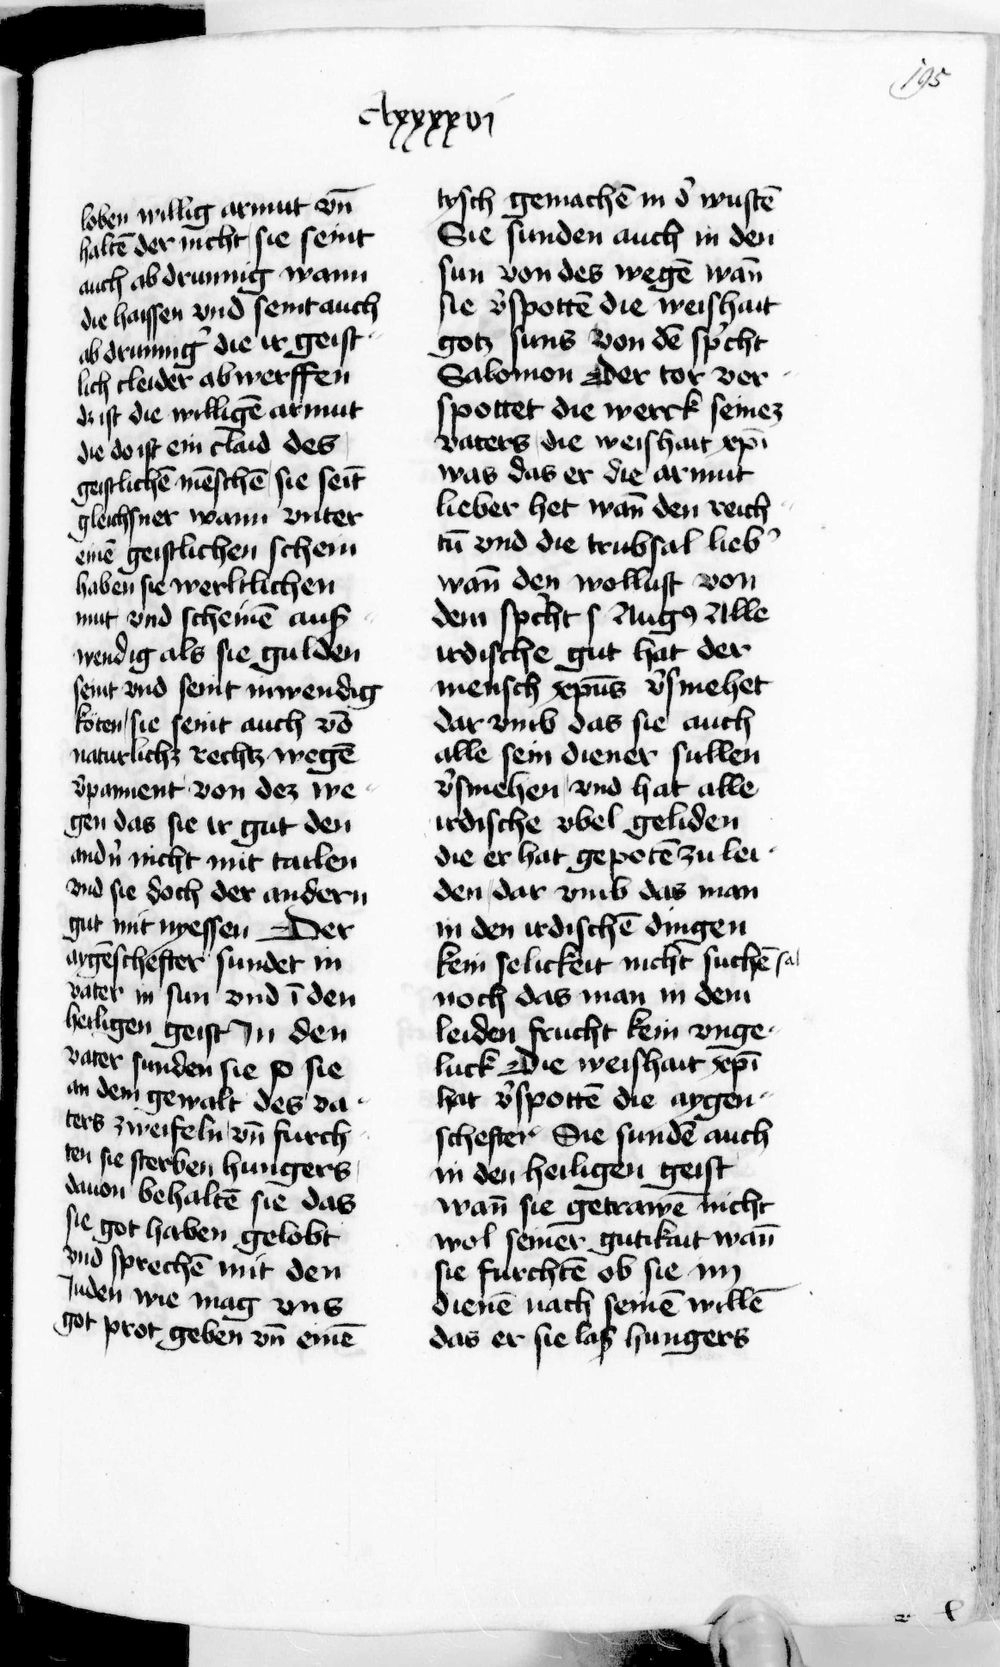 195
Cxxxxvi
loben willig armut vn̄
haltē der nicht sie seint
auch abdrunnig wann
die haissen vnd seint auch
abdrunnig' die ir geist
lich cleider abwerffen
dz ist die willigē armut
die do ist ein claid des
geistlichē mēschē sie seīt
gleichsner wann vnter
einē geistlichen schein
haben sie werltlichen
mut vnd scheinē auß
wendig als sie gulden
seint vnd seint inwendig
koten sie seint auch vō
naturlichz rechtz wegē
v'pannent von dez we
gen das sie ir gut den
andn̄ nicht mit tailen
vnd sie doch der andern
gut mit nyessen Der
aygēschefter sundet in
vater in sun vnd ī den
heiligen geist In den
vater sunden sie so sie
an dem gewalt des va
ters zweifeln vn̄ furch
ten sie sterben hungers
dauon behaltē sie das
sie got haben gelobt
vnd sprechē mit den
Juden wie mag vns
got prot geben vn̄ einē
tysch gemachē in d' wustē
Sie sunden auch in den
sun von des wegē wan̄
sie v'spottē die weishait
gotz suns Von dē sp'cht
Salomon Der tor ver
spottet die werck seinez
vaters die weishait xp̄i
was das er die armut
lieber het wan̄ den reich
tū vnd die trubsal lieb'
wan̄ den wollust von
dem sp'cht s Aug9 Alle
irdische gut hat der
mensch xp̄us v'smehet
dar vmb das sie auch
alle sein diener sullen
v'smehen vnd hat alle
irdische vbel geliden
die er hat gepotē zu lei
den dar vmb das man
in den irdischē dingen
kein selickeit nicht suchē sal
noch das man in dem
leiden frucht kein vnge
luck Die weishait xp̄i
hat v'spottē die aygen
schefter Sie sundē auch
in den heiligen geist
wan̄ sie getrawē nicht
wol seiner gutikait wan̄
sie furchtē ob sie im
dienē nach seinē willē
das er sie laß hungers